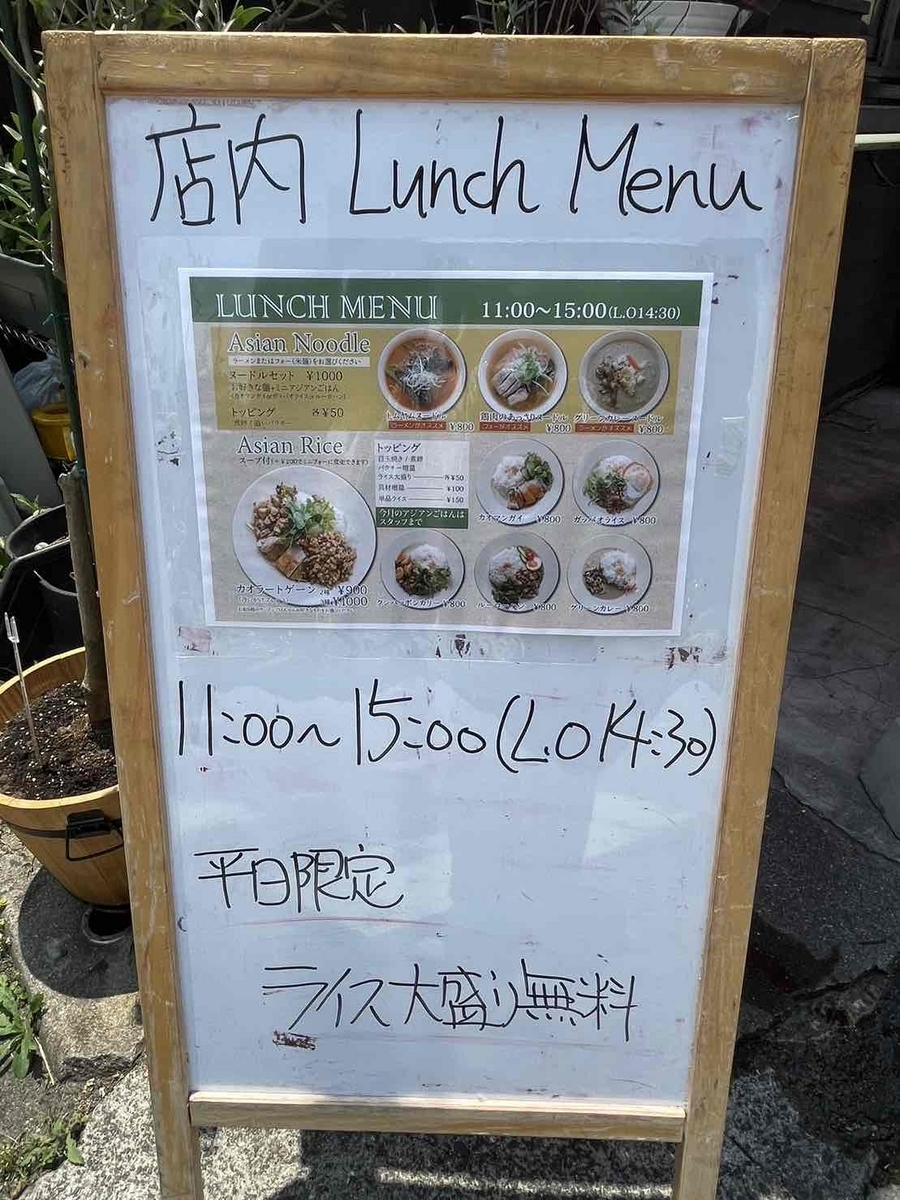 店内 Lunch Menu
LUNCH MENU 11:00～15:00(L.O14:30)
Asian Noodle
ラーメンまたはフォー(米麺)をお選びください
ヌードルセット ¥1000
お好きな麺+ミニアジアンごはん
トッピング 各¥50
トムヤムヌードル
ラーメンがオススメ ¥800
鶏肉のあっさりヌードル
フォーがオススメ ¥800
グリーンカレーヌードル
ラーメンがオススメ ¥800
Asian Rice
スープ付(+¥200でミニフォーに変更できます)
トッピング
目玉焼き/煮卵
パクチー増量
ライス大盛り 各¥50
具材増量 ¥100
単品ライス ¥150
今月のアジアンごはんは
スタッフまで
カオマンガイ ¥800
ガッパオライス ¥800
カオラートゲーン 2種 ¥900
¥1000
¥800
¥800
グリーンカレー ¥800
11:00～15:00(L.O14:30)
平日限定
ライス大盛り無料